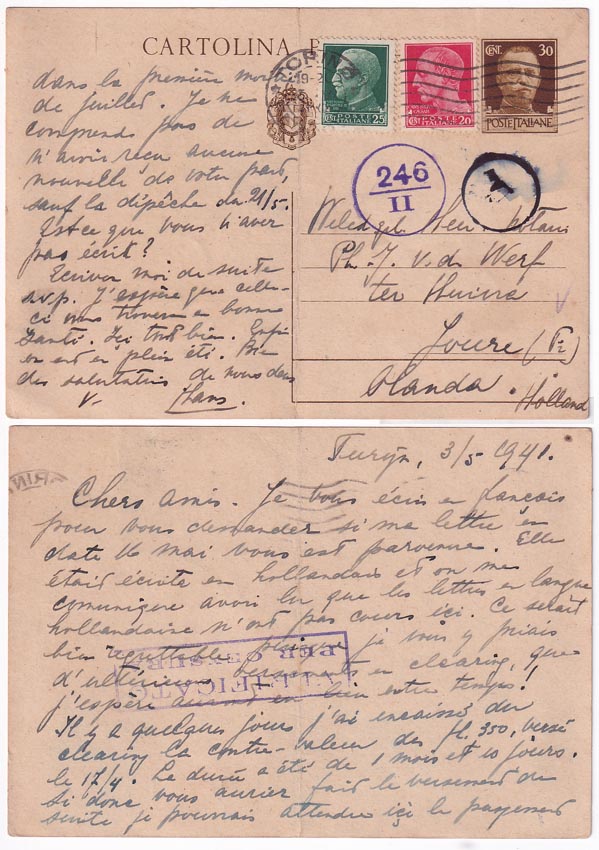 CARTOLINA P
TORINO
19-
CENT. 30
POSTE ITALIANE
POSTE ITALIANE 25
POSTE ITALIANE 20
246
II
A
dans la première moi
de juillet. Je ne
comprends pas de
n'avoir reçu aucune
nouvelle de votre part,
sauf la dépêche du 21/5.
Est ce que vous n'avez
pas écrit?
Ecrivez moi de suite
s.v.p. J'espère que celle-
ci vous trouvera en bonne
santé. Ici tout bien. Enfin
on est en plein été. Bien
des salutations de nous deux
v. Hans.
Weled.gel. Heer Notaris
Ph. J. v.d. Werf
ter Huivra
Joure (Fr)
Olanda.
Holland
Turijn, 3/5 1941.
Chers amis. Je vous écris en français
pour vous demander si ma lettre en
date 16 mai vous est parvenue. Elle
était écrite en hollandais et on me
comunique avoir lu que les lettres en langue
hollandaise n'ont pas cours ici. Ce serait
bien regrettable, je vous y priais
d'ultérieurs en clearing, que
j'espère auront eu lieu entre temps!
VERIFICATO
PER CENSURA
Il y a quelques jours j'ai encaissé du
clearing la contre-valeur des fl. 350, versé
le 17/4. Le durée a été de 1 mois et 10 jours.
Si donc vous auriez fait le versement de
suite je pourrais attendre ici le payement